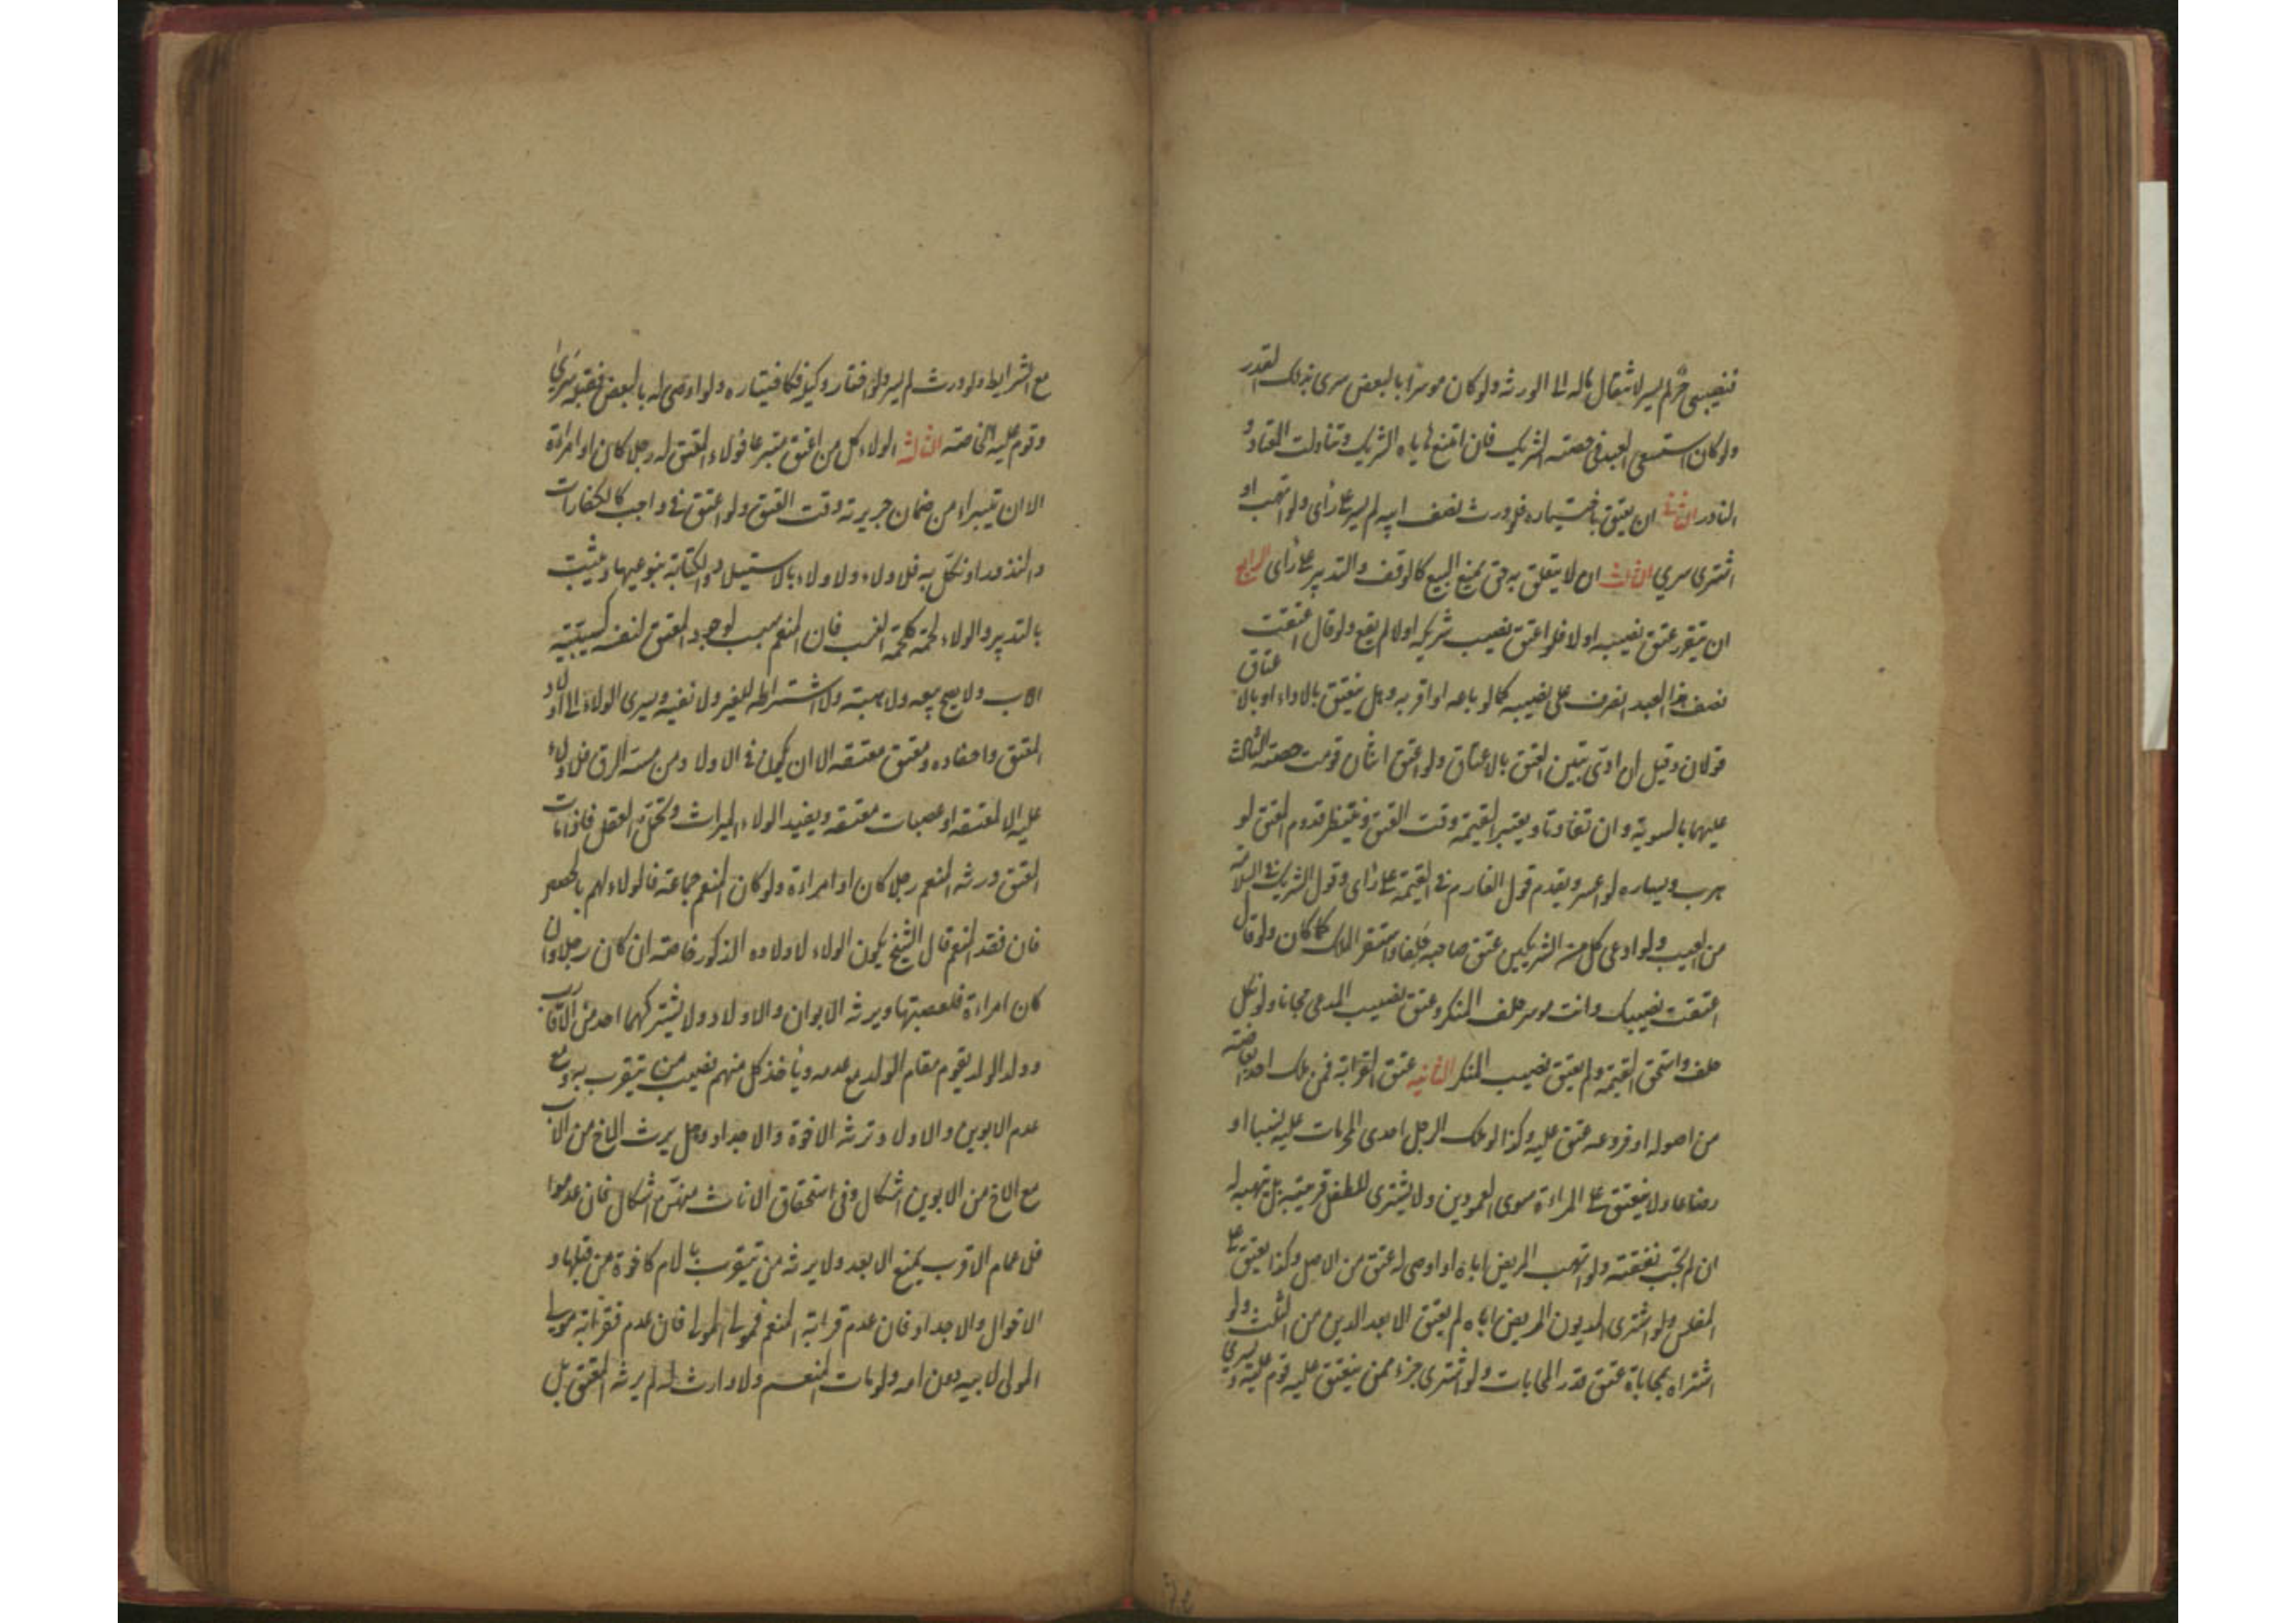 فنصيبي حر لم يسر لانتقال ماله الى الورثه ولو كان موسرا بالبعض سرى بذلك القدر
ولو كان استسعى العبد في حصته الشريك فان امتنع هاياه الشريك وتناولت المعتاد و
النادر الثاني ان يعتق باختياره فلو ورث نصف ابيه لم يسر على رأى ولو اتهب او
اشترى سرى الثالث ان لا يتعلق به حق يمنع البيع كالوقف والتدبير على رأى الرابع
ان يتقرر عتق نصيبه اولا فلو اعتق نصيب شريكه اولا لم يقع ولو قال اعتقت
نصف هذا العبد انصرف على نصيبه كما لو باعه او اقر به وهل ينعتق بالاداء او بالاعتاق
قولان وقيل ان ادى تبين العتق بالاعتاق ولو اعتق اثنان قومت حصته الثالث
عليهما بالسويه وان تفاوتا ويعتبر القيمه وقت العتق وينتظر قدوم المعتق لو
هرب ويساره لو اعسر ويقدم قول الغارم في القيمة على رأى وقول الشريك في السلامة
من العيب ولو ادعى كل من الشريكين عتق صاحبه حلفا واستقر الملك كما كان ولو قال
اعتقت نصيبك وانت موسر حلف المنكر وعتق نصيب المدعى مجانا ولو نكل
حلف واستحق القيمة ولم يعتق نصيب المنكر الثانيه عتق القرابة فمن ملك احد ابعاضه
من اصوله او فروعه عتق عليه وكذا لو ملك الرجل احدى المحرمات عليه نسبا او
رضاعا ولا ينعتق على المراءة سوى العمودين ولا يشترى للطفل قريبه بل يتهبه له
ان لم تجب نفقته ولو اتهب المريض اباه او اوصى له عتق من الاصل وكذا يعتق على
المفلس ولو اشترى المديون المريض اباه لم يعتق الا بعد الدين من الثلث ولو
اشتراه بمحاباة عتق قدر المحابات ولو اشترى جزء ممن ينعتق عليه قوم عليه وسرى
مع الشرايط ولو ورث لم يسر ولو اختار وكيله فكاختياره ولو اوصى له بالبعض فقبله سرى
وقوم عليه خاصته الثالث الولاء كل من اعتق متبرعا فولاء المعتق له رجلا كان او امراءة
الا ان يتبراء من ضمان جريرته وقت العتق ولو اعتق في واجب كالكفارات
والنذور او نكل به فلا ولاء ولا ولاء بالاستيلاد والكتابة بنوعيها ويثبت
بالتدبير والولاء لحمة كلحمة النسب فان المنعم سبب لوجود المعتق لنفسه كسببيته
الاب ولا يصح بيعه ولا هبته ولا اشتراطه للغير ولا نفيه ويسرى الولاء الى اولاد
المعتق واحفاده ومعتق معتقه الا ان يكون في الاولاد من مسه الرق فلا ولاء
عليه الا لمعتقه او عصبات معتقه ويفيد الولاء الميراث وتحمل العقل فاذا مات
العتيق ورثه المنعم رجلا كان او امراءة ولو كان المنعم جماعته فالولاء لهم بالحصص
فان فقد المنعم قال الشيخ يكون الولاء لاولاده الذكور خاصته ان كان رجلا وان
كان امراءة فلعصبتها ويرثه الابوان والاولاد ولا يشتركهما احد من الاقارب
وولد الولد يقوم مقام الولد مع عدمه ويأخذ كل منهم نصيب من يتقرب به ومع
عدم الابوين والاولاد ترثه الاخوة والاجداد وهل يرث الاخ من الاب
مع الاخ من الابوين اشكال وفي استحقاق الاناث منهن اشكال فان عدموا
فلاعمام الاقرب يمنع الابعد ولا يرثه من يتقرب بالام كاخوة من قبلها و
الاخوال والاجداد فان عدم قرابة المنعم فمولى المولى فان عدم فقرابة مولى
المولى لابيه دون امه ولو مات المنعم ولا وارث له لم يرثه المعتق بل